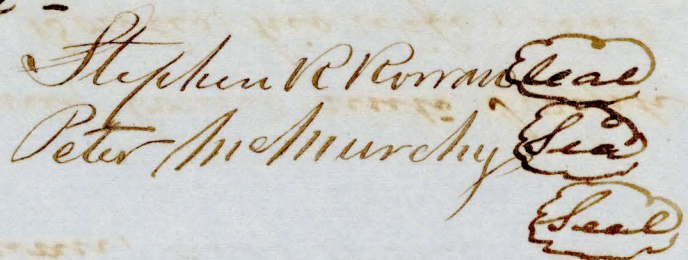 Stephen R Rowan Seal
Peter McMurchy Seal
Seal